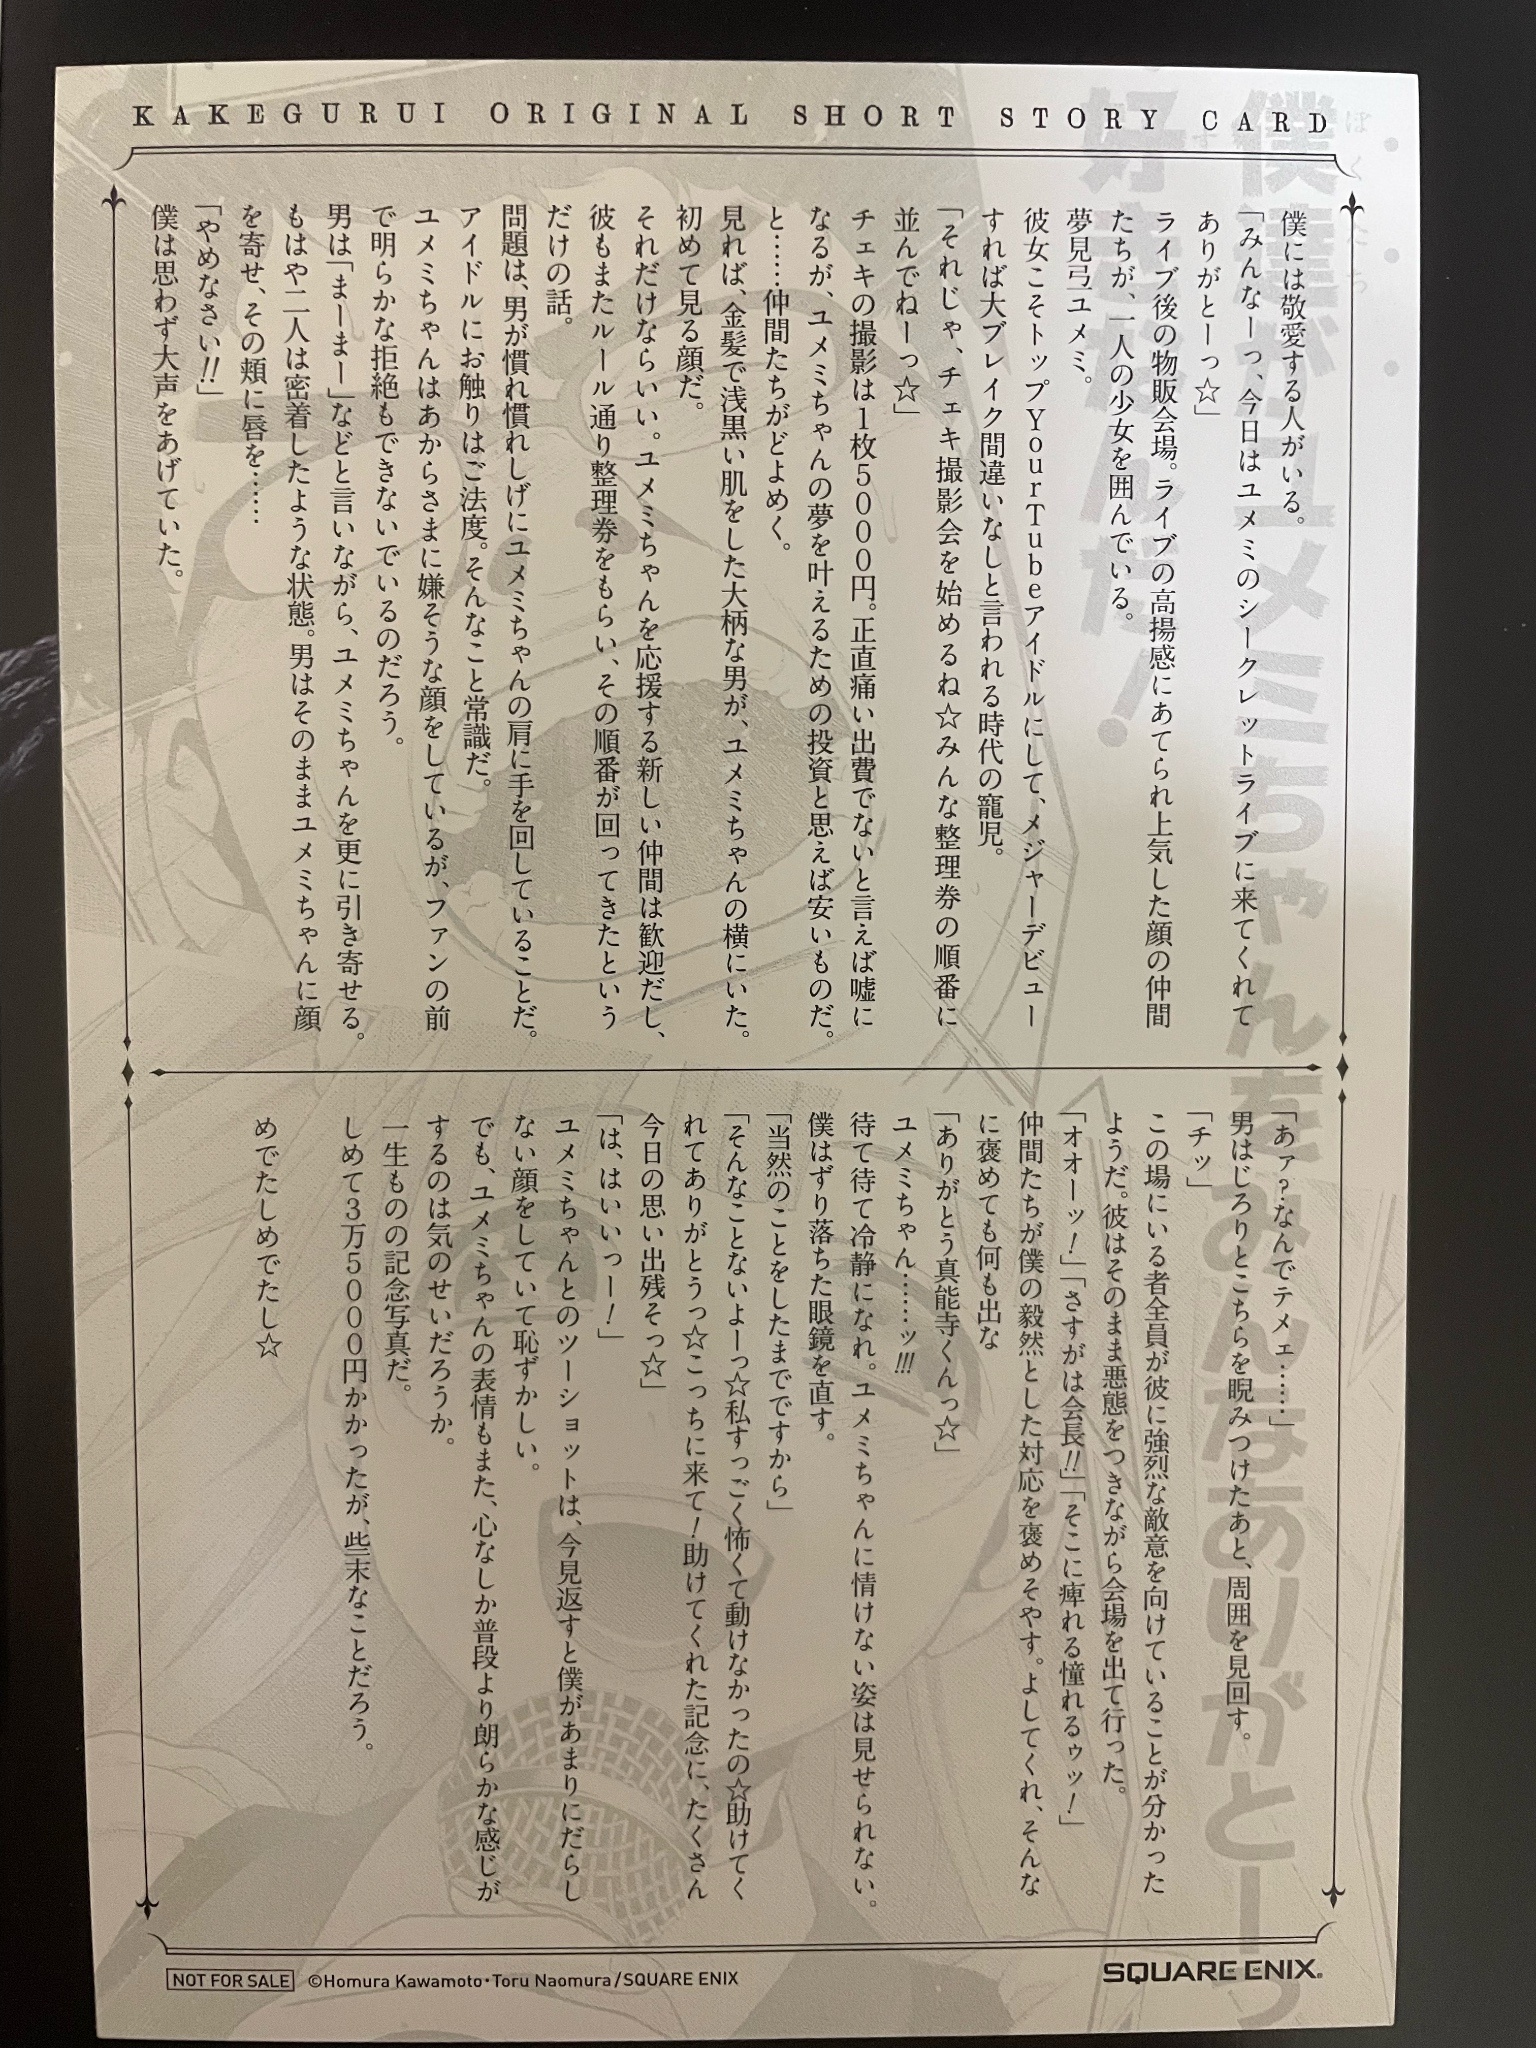 KAKEGURUI ORIGINAL SHORT STORY CARD
僕には敬愛する人がいる。
「みんなーっ、今日はユメミのシークレットライブに来てくれて
ありがとーっ☆」
ライブ後の物販会場。ライブの高揚感にあてられ上気した顔の仲間
たちが、一人の少女を囲んでいる。
夢見弖ユメミ。
彼女こそトップYourTubeアイドルにして、メジャーデビュー
すれば大ブレイク間違いなしと言われる時代の寵児。
「それじゃ、チェキ撮影会を始めるね☆みんな整理券の順番に
並んでねーっ☆」
チェキの撮影は1枚5000円。正直痛い出費でないと言えば嘘に
なるが、ユメミちゃんの夢を叶えるための投資と思えば安いものだ。
と……仲間たちがどよめく。
見れば、金髪で浅黒い肌をした大柄な男が、ユメミちゃんの横にいた。
初めて見る顔だ。
それだけならいい。ユメミちゃんを応援する新しい仲間は歓迎だし、
彼もまたルール通り整理券をもらい、その順番が回ってきたという
だけの話。
問題は、男が慣れ慣れしげにユメミちゃんの肩に手を回していることだ。
アイドルにお触りはご法度。そんなこと常識だ。
ユメミちゃんはあからさまに嫌そうな顔をしているが、ファンの前
で明らかな拒絶もできないでいるのだろう。
男は「まーまー」などと言いながら、ユメミちゃんを更に引き寄せる。
もはや二人は密着したような状態。男はそのままユメミちゃんに顔
を寄せ、その頬に唇を……
「やめなさい!!」
僕は思わず大声をあげていた。
「あァ?なんでテメェ……」
男はじろりとこちらを睨みつけたあと、周囲を見回す。
「チッ」
この場にいる者全員が彼に強烈な敵意を向けていることが分かった
ようだ。彼はそのまま悪態をつきながら会場を出て行った。
「オオーッ!」「さすがは会長!!」「そこに痺れる憧れるゥッ!」
仲間たちが僕の毅然とした対応を褒めそやす。よしてくれ、そんな
に褒めても何も出な
「ありがとう真能寺くんっ☆」
ユメミちゃん……ッ!!!
待て待て冷静になれ。ユメミちゃんに情けない姿は見せられない。
僕はずり落ちた眼鏡を直す。
「当然のことをしたまでですから」
「そんなことないよーっ☆私すっごく怖くて動けなかったの☆助けてく
れてありがとうっ☆こっちに来て!助けてくれた記念に、たくさん
今日の思い出残そっ☆」
「は、はいいっー!」
ユメミちゃんとのツーショットは、今見返すと僕があまりにだらし
ない顔をしていて恥ずかしい。
でも、ユメミちゃんの表情もまた、心なしか普段より朗らかな感じが
するのは気のせいだろうか。
一生ものの記念写真だ。
しめて3万5000円かかったが、些末なことだろう。
めでたしめでたし☆
僕達がユメミちゃんを
好きなんだ!
みんなありがとーっ
NOT FOR SALE ©Homura Kawamoto・Toru Naomura/SQUARE ENIX
SQUARE ENIX.